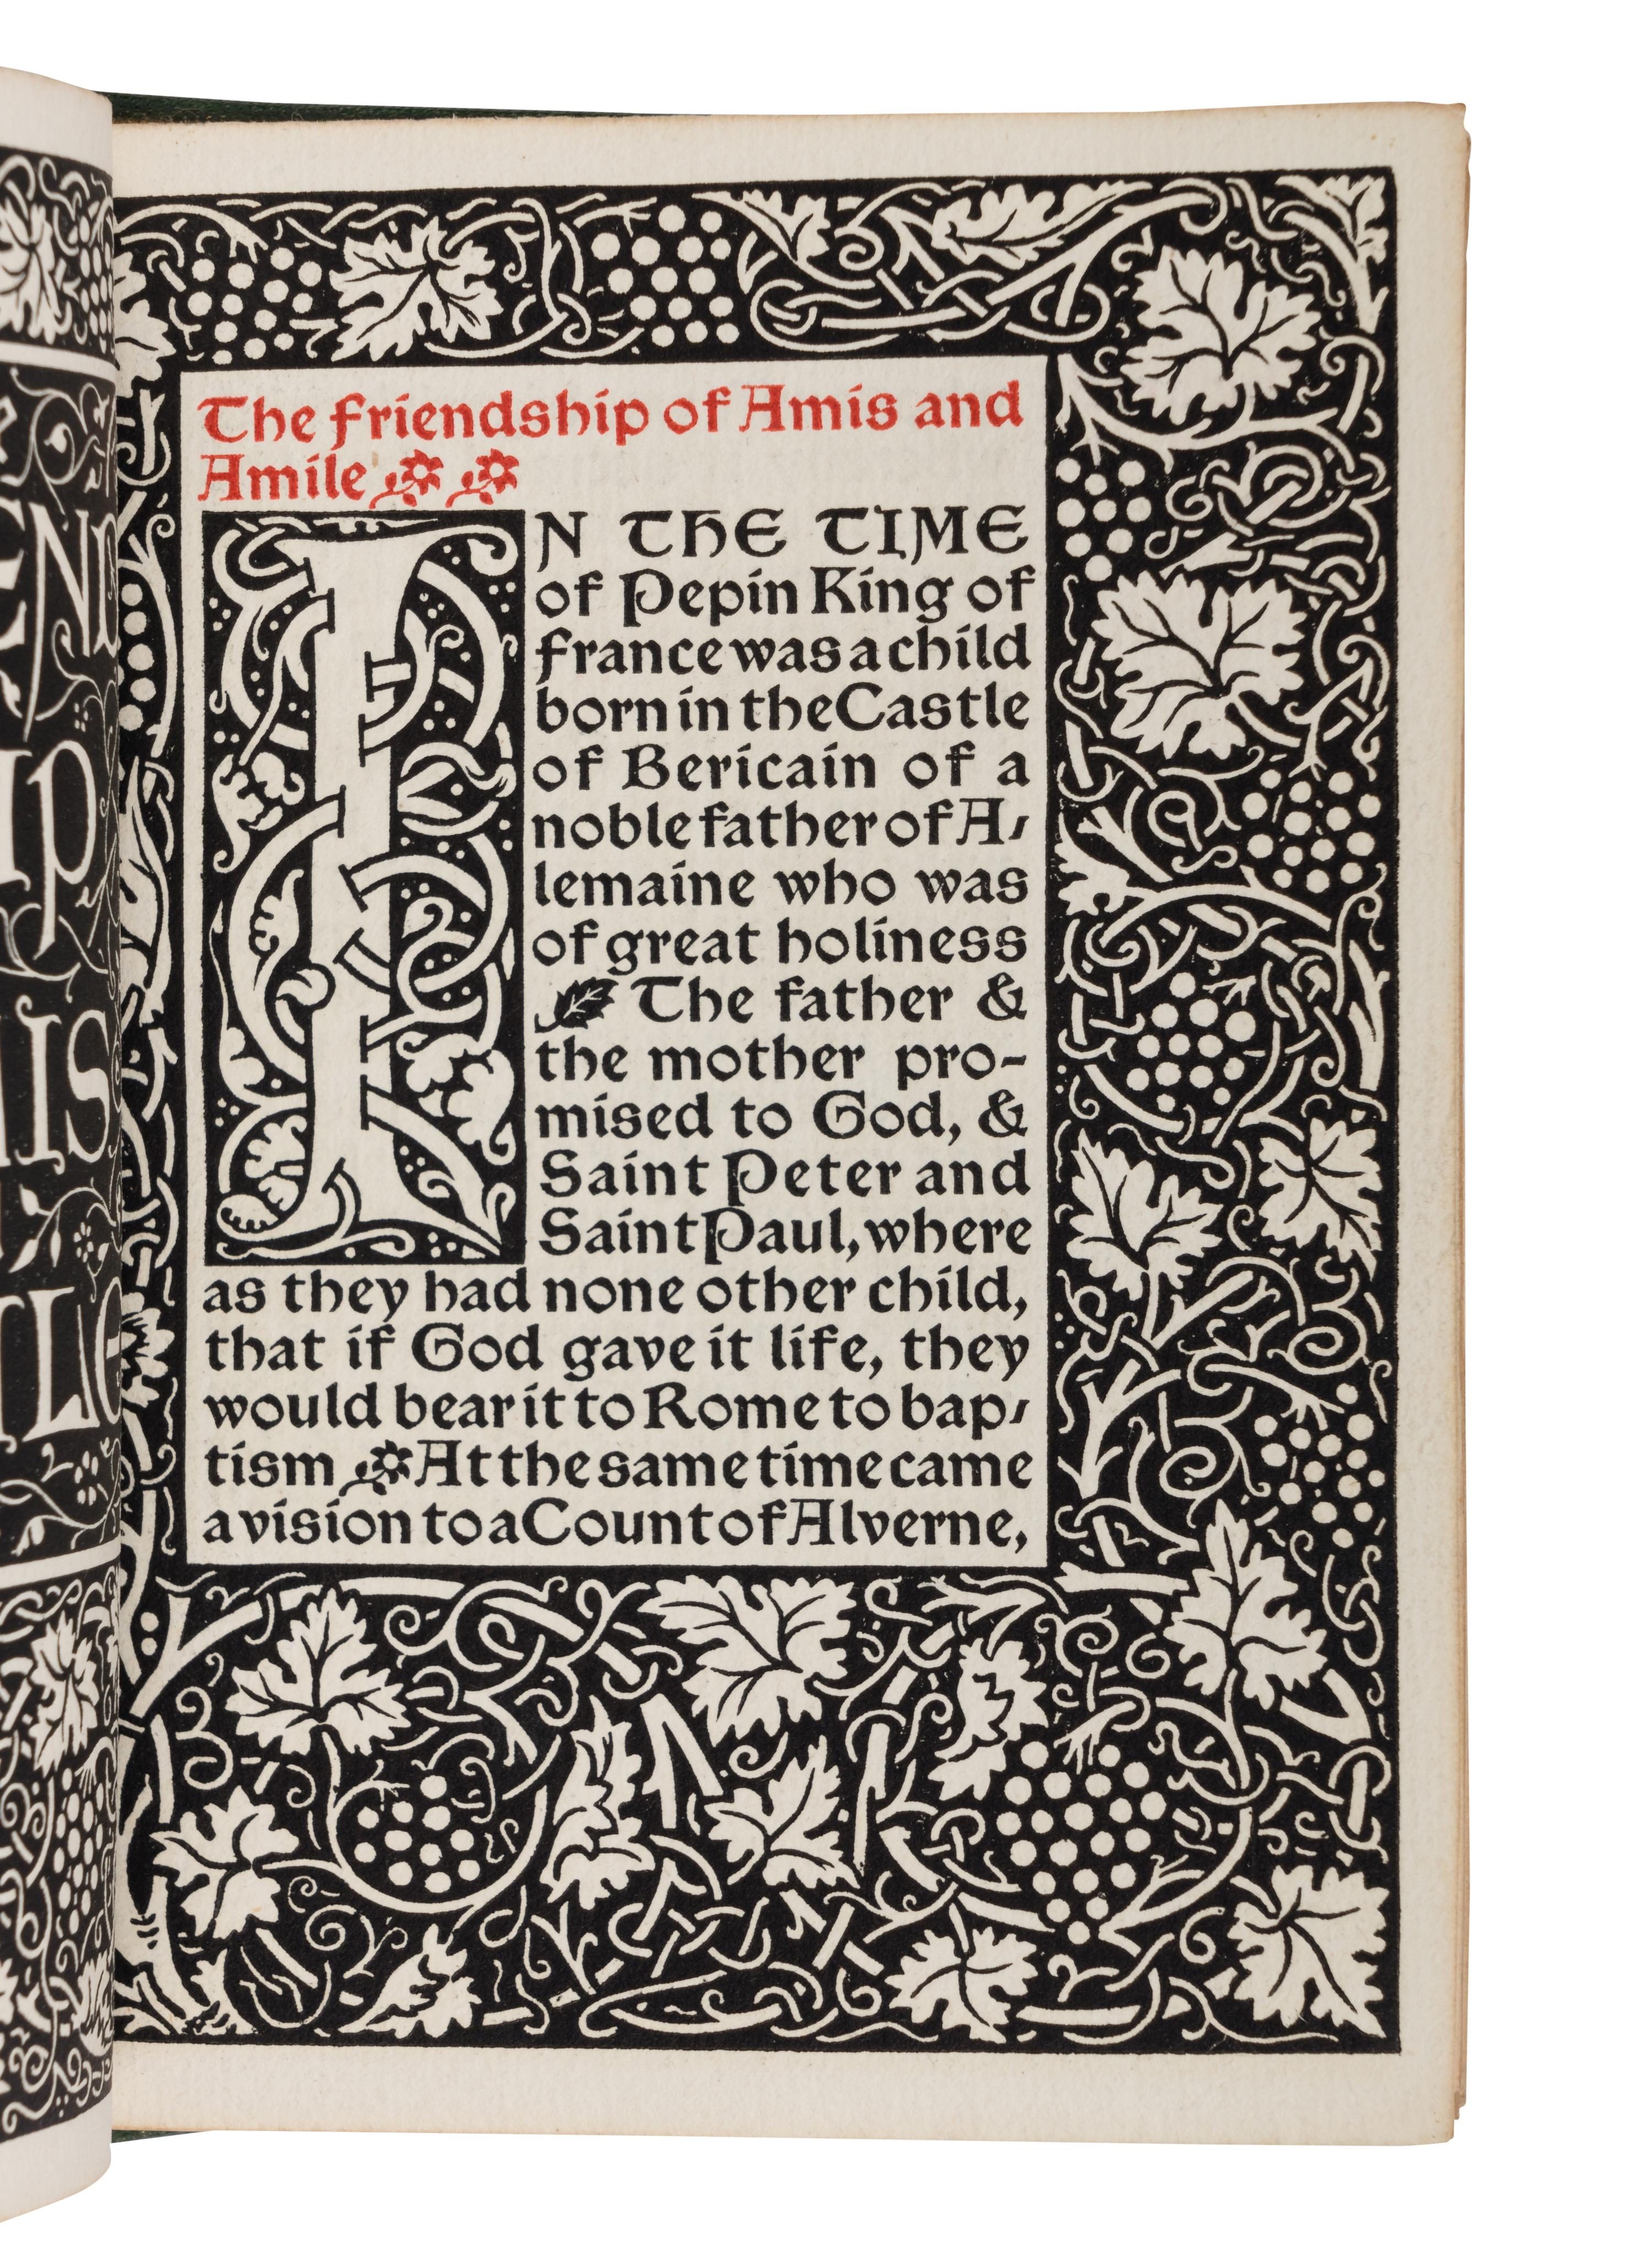 The friendship of Amis and
Amile
IN THE TIME
of Pepin King of
France was a child
born in the Castle
of Bericain of a
noble father of A-
lemaine who was
of great holiness
The father &
the mother pro-
mised to God, &
Saint Peter and
Saint Paul, where
as they had none other child,
that if God gave it life, they
would bear it to Rome to bap-
tism At the same time came
a vision to a Count of Alverne,